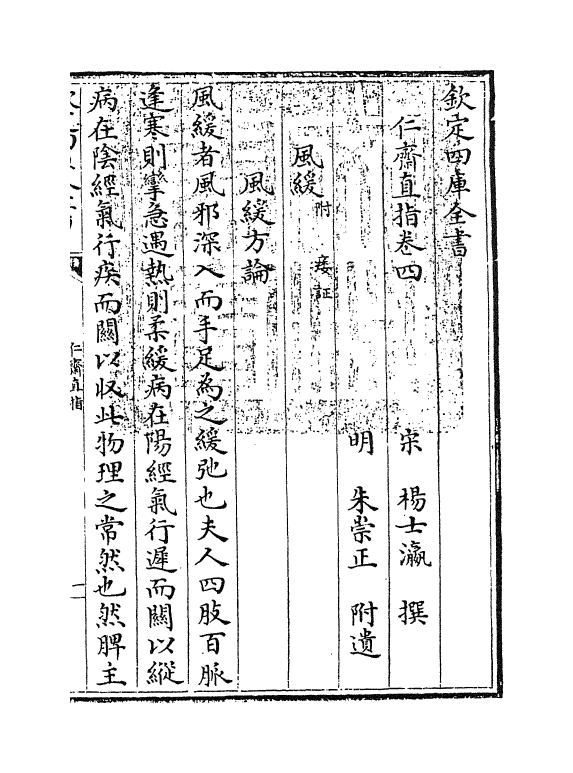 欽定四庫全書
仁齋直指卷四
宋　楊士瀛　撰
明　朱崇正　附遺
風緩附痿証
風緩方論
風緩者風邪深入而手足為之緩弛也夫人四肢百脈
逢寒則攣急遇熱則柔緩病在陽經氣行遲而關以縱
病在陰經氣行疾而關以收此物理之常然也然脾主
仁齋直指